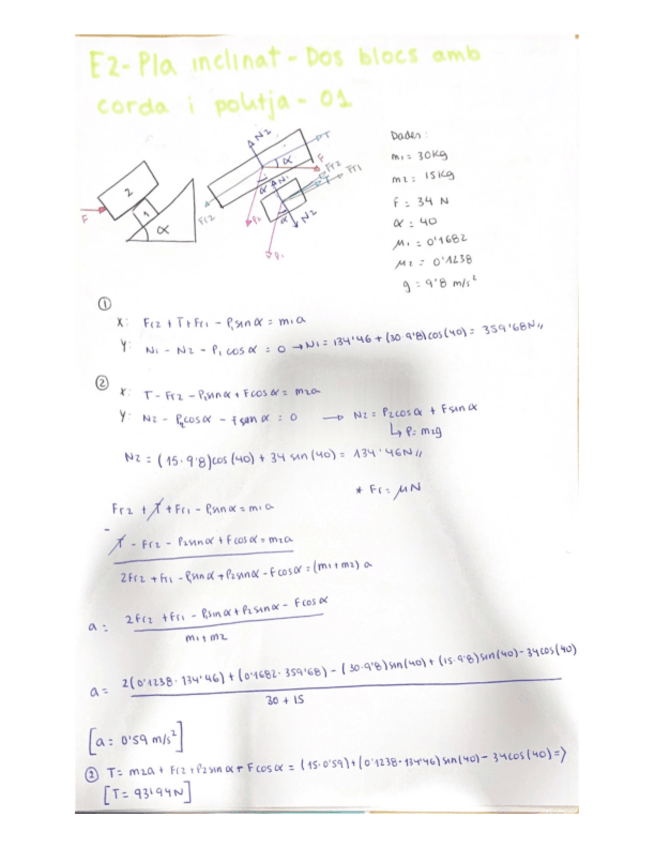 E2-Pla inclinat-Dos blocs amb
corda i politja-01
N2
T
α
F
Fr2
α
N1
Fr2
Fr1
T
P2
α
N2
P1
2
1
F
α
Dades:
m1 = 30Kg
m2 = 15Kg
F = 34 N
α = 40
μ1 = 0'1682
μ2 = 0'1238
g = 9'8 m/s²
①
X: Fr2 + T + Fr1 - P1 sin α = m1 a
Y: N1 - N2 - P1 cos α = 0 → N1 = 134'46 + (30·9'8)cos(40) = 359'68N//
②
X: T - Fr2 - P2 sin α + F cos α = m2a
Y: N2 - P2 cos α - F sen α = 0 → N2 = P2 cos α + F sin α
↳ P = m2g
N2 = (15·9'8)cos(40) + 34 sin(40) = 134'46N//
* Fr = μN
Fr2 + T + Fr1 - P1 sin α = m1 a
-
T - Fr2 - P2 sin α + F cos α = m2a
2Fr2 + Fr1 - P1 sin α + P2 sin α - F cos α = (m1+m2) a
a = 2Fr2 + Fr1 - P1 sin α + P2 sin α - F cos α
m1+m2
a = 2(0'1238·134'46) + (0'1682·359'68) - (30·9'8)sin(40) + (15·9'8)sin(40) - 34cos(40)
30 + 15
[a = 0'59 m/s²]
② T = m2a + Fr2 + P2 sin α + F cos α = (15·0'59) + (0'1238·134'46) sin(40) - 34cos(40) =>
[T = 93'94N]